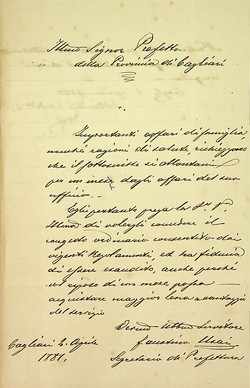 Illmo Signor Prefetto
della Provincia di Cagliari
Importanti affari di famiglia
nonché ragioni di salute, richieggono
che il sottoscritto si allontani
per un mese dagli affari del suo
uffizio.
Egli pertanto prega la S. V.
Illma di volergli concedere il
congedo ordinario consentito dai
vigenti Regolamenti, ed ha fiducia
di essere esaudito, anche perché
un riposo di un mese possa
acquistare maggior lena a vantaggio
del servizio
Devmo Obbmo Servitore
Faustino
Cagliari 2. Aprile
1881.
Segretario di Prefettura